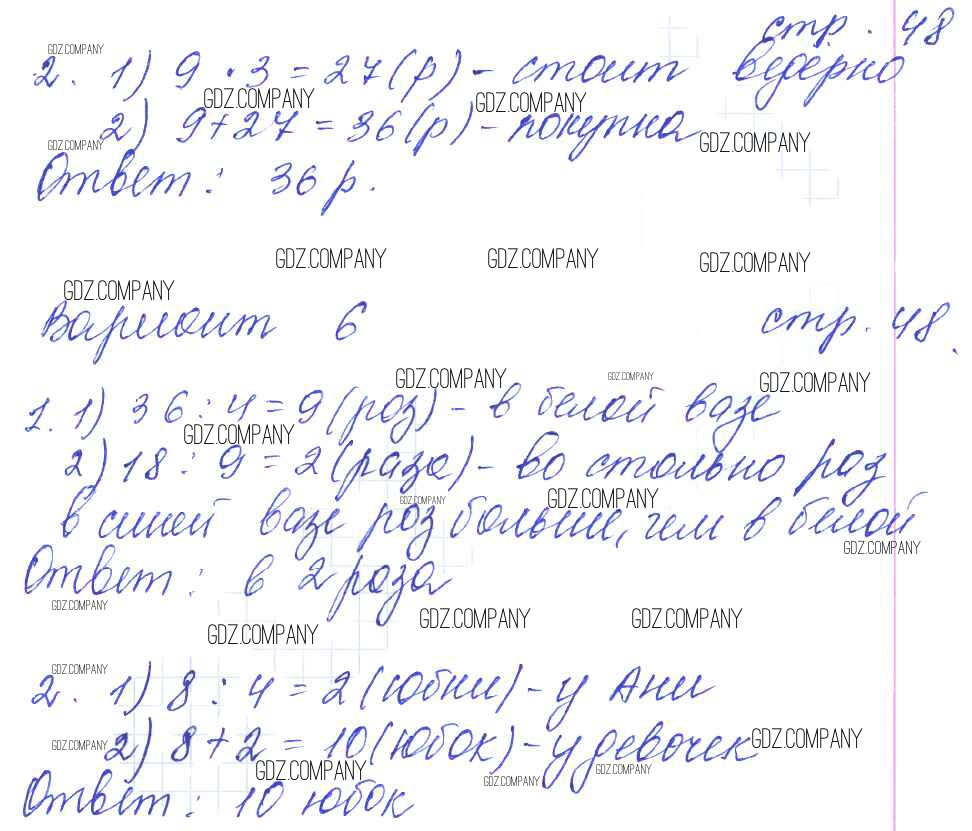 стр. 48
GDZ.COMPANY
2. 1) 9 · 3 = 27 (р) - стоит ведёрко
GDZ.COMPANY GDZ.COMPANY
2) 9 + 27 = 36 (р) - покупка
GDZ.COMPANY GDZ.COMPANY
Ответ: 36 р.
GDZ.COMPANY GDZ.COMPANY GDZ.COMPANY
GDZ.COMPANY
Вариант 6 стр. 48.
GDZ.COMPANY GDZ.COMPANY GDZ.COMPANY
1. 1) 36 : 4 = 9 (роз) - в белой вазе
GDZ.COMPANY
2) 18 : 9 = 2 (раза) - во столько раз
GDZ.COMPANY GDZ.COMPANY
в синей вазе роз больше, чем в белой
GDZ.COMPANY
Ответ: в 2 раза
GDZ.COMPANY GDZ.COMPANY GDZ.COMPANY
GDZ.COMPANY
GDZ.COMPANY
2. 1) 8 : 4 = 2 (юбки) - у Ани
2) 8 + 2 = 10 (юбок) - у девочек
GDZ.COMPANY GDZ.COMPANY
GDZ.COMPANY GDZ.COMPANY GDZ.COMPANY
Ответ: 10 юбок